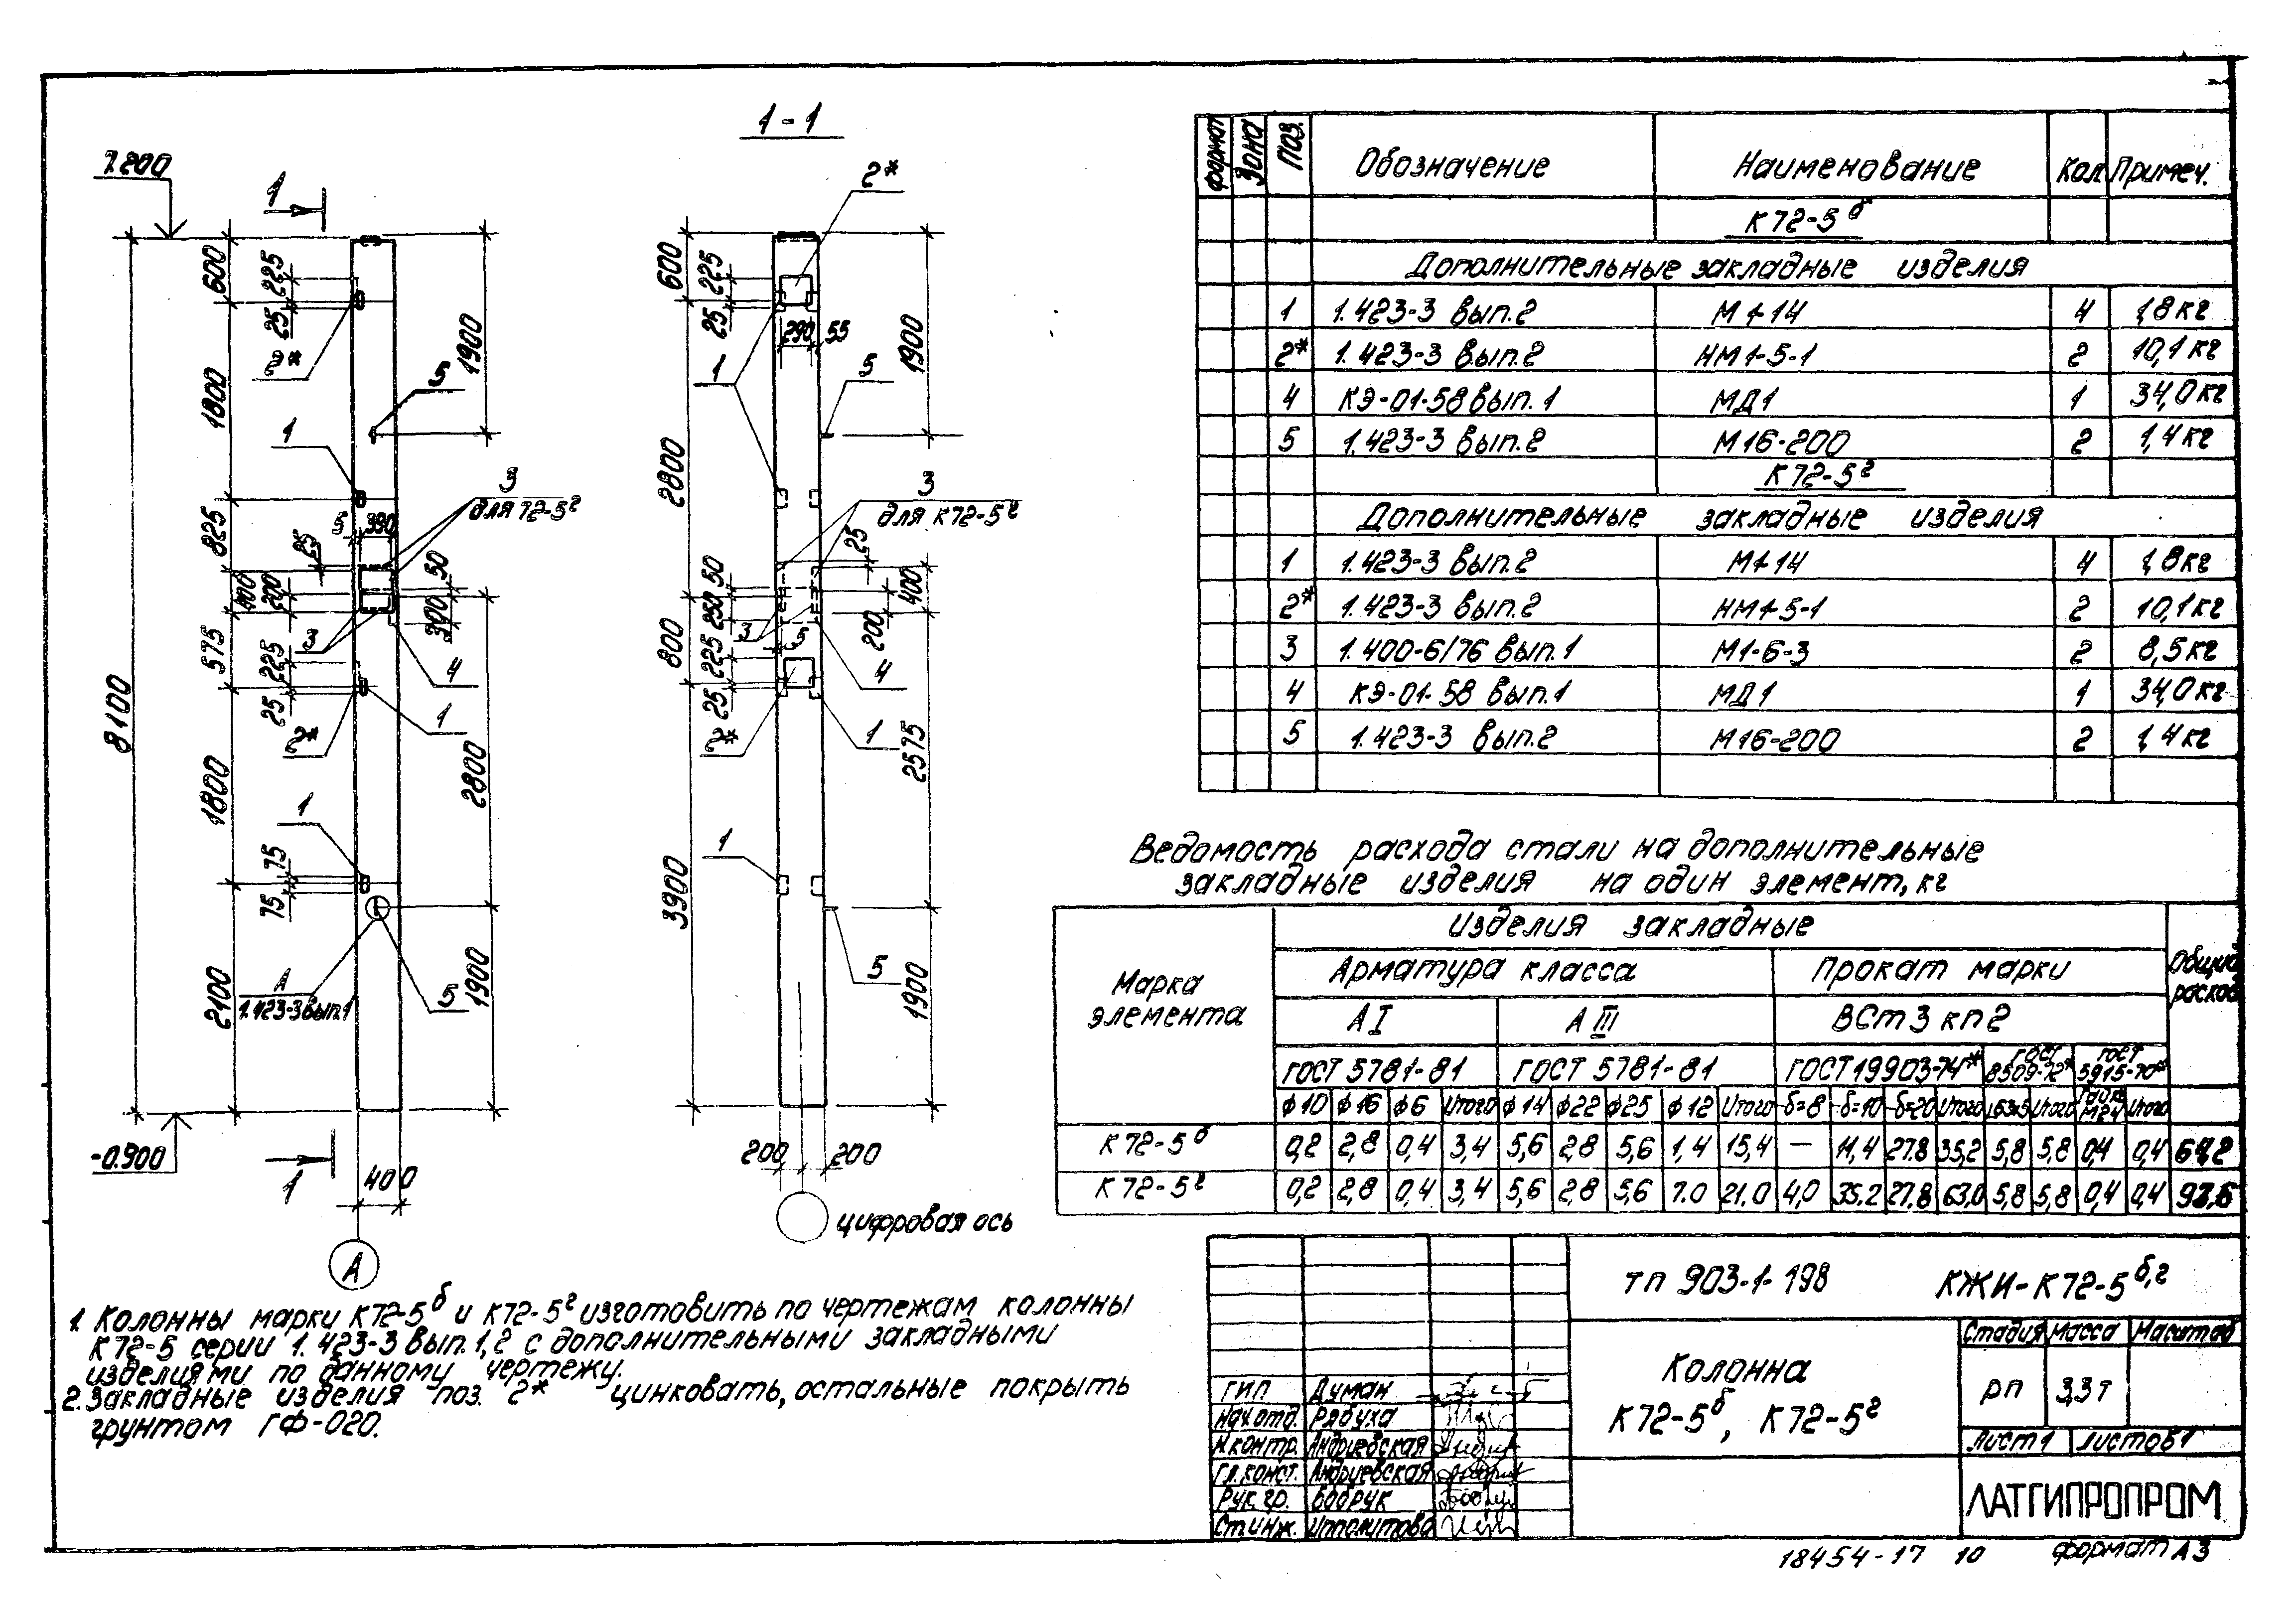 7.200
1
600
225
25
2*
1800
1
5
1900
3
для 72-5г
825
5
390
25
400
200
50
300
575
3
225
25
4
1
2*
8100
1800
1
2800
75
75
А
1.423-3 вып.1
5
2100
1900
-0.900
1
400
А
1-1
2*
600
225
25
290
55
1
5
1900
2800
3
для К72-5г
25
50
250
400
200
3
5
800
225
25
4
2*
1
2575
1
3900
5
1900
200
200
цифровая ось
1. Колонны марки К72-5б и К72-5г изготовить по чертежам колонны
К72-5 серии 1.423-3 вып.1,2 с дополнительными закладными
изделиями по данному чертежу.
2. Закладные изделия поз. 2* цинковать, остальные покрыть
грунтом ГФ-020.
формат Зона Поз. Обозначение Наименование Кол. Примеч.
К72-5б
Дополнительные закладные изделия
1 1.423-3 вып.2 М1-14 4 1,8 кг
2* 1.423-3 вып.2 НМ1-5-1 2 10,1 кг
4 КЭ-01-58 вып.1 МД1 1 34,0 кг
5 1.423-3 вып.2 М16-200 2 1,4 кг
К72-5г
Дополнительные закладные изделия
1 1.423-3 вып.2 М1-14 4 1,8 кг
2* 1.423-3 вып.2 НМ1-5-1 2 10,1 кг
3 1.400-6/76 вып.1 М1-6-3 2 8,5 кг
4 КЭ-01-58 вып.1 МД1 1 34,0 кг
5 1.423-3 вып.2 М16-200 2 1,4 кг
Ведомость расхода стали на дополнительные
закладные изделия на один элемент, кг
Марка элемента
Изделия закладные
Общий расход
Арматура класса Прокат марки
А I А III ВСт3кп2
ГОСТ 5781-81 ГОСТ 5781-81 ГОСТ 19903-74* ГОСТ 8509-72* ГОСТ 5915-70*
ф10 ф16 ф6 Итого ф14 ф22 ф25 ф12 Итого δ=8 δ=10 δ=20 Итого L63×5 Итого Гайка М24 Итого
К72-5б 0,2 2,8 0,4 3,4 5,6 2,8 5,6 1,4 15,4 — 11,4 27.8 35,2 5,8 5,8 0,4 0,4
К72-5г 0,2 2,8 0,4 3,4 5,6 2,8 5,6 7.0 21.0 4,0 35.2 27.8 63,0 5,8 5,8 0,4 0,4
тп 903-1-198 КЖИ-К72-5б,г
Колонна
К72-5б, К72-5г
Стадия Масса Масштаб
рп 3,3т
Лист 1 Листов 1
ЛАТГИПРОПРОМ
ГИП Думан
Нач.отд. Рябуха
Н.контр. Андриевская
Гл.конст. Андриевская
Рук.гр. Бобрук
Ст.инж. Ипполитова
18454-17 10 формат А3